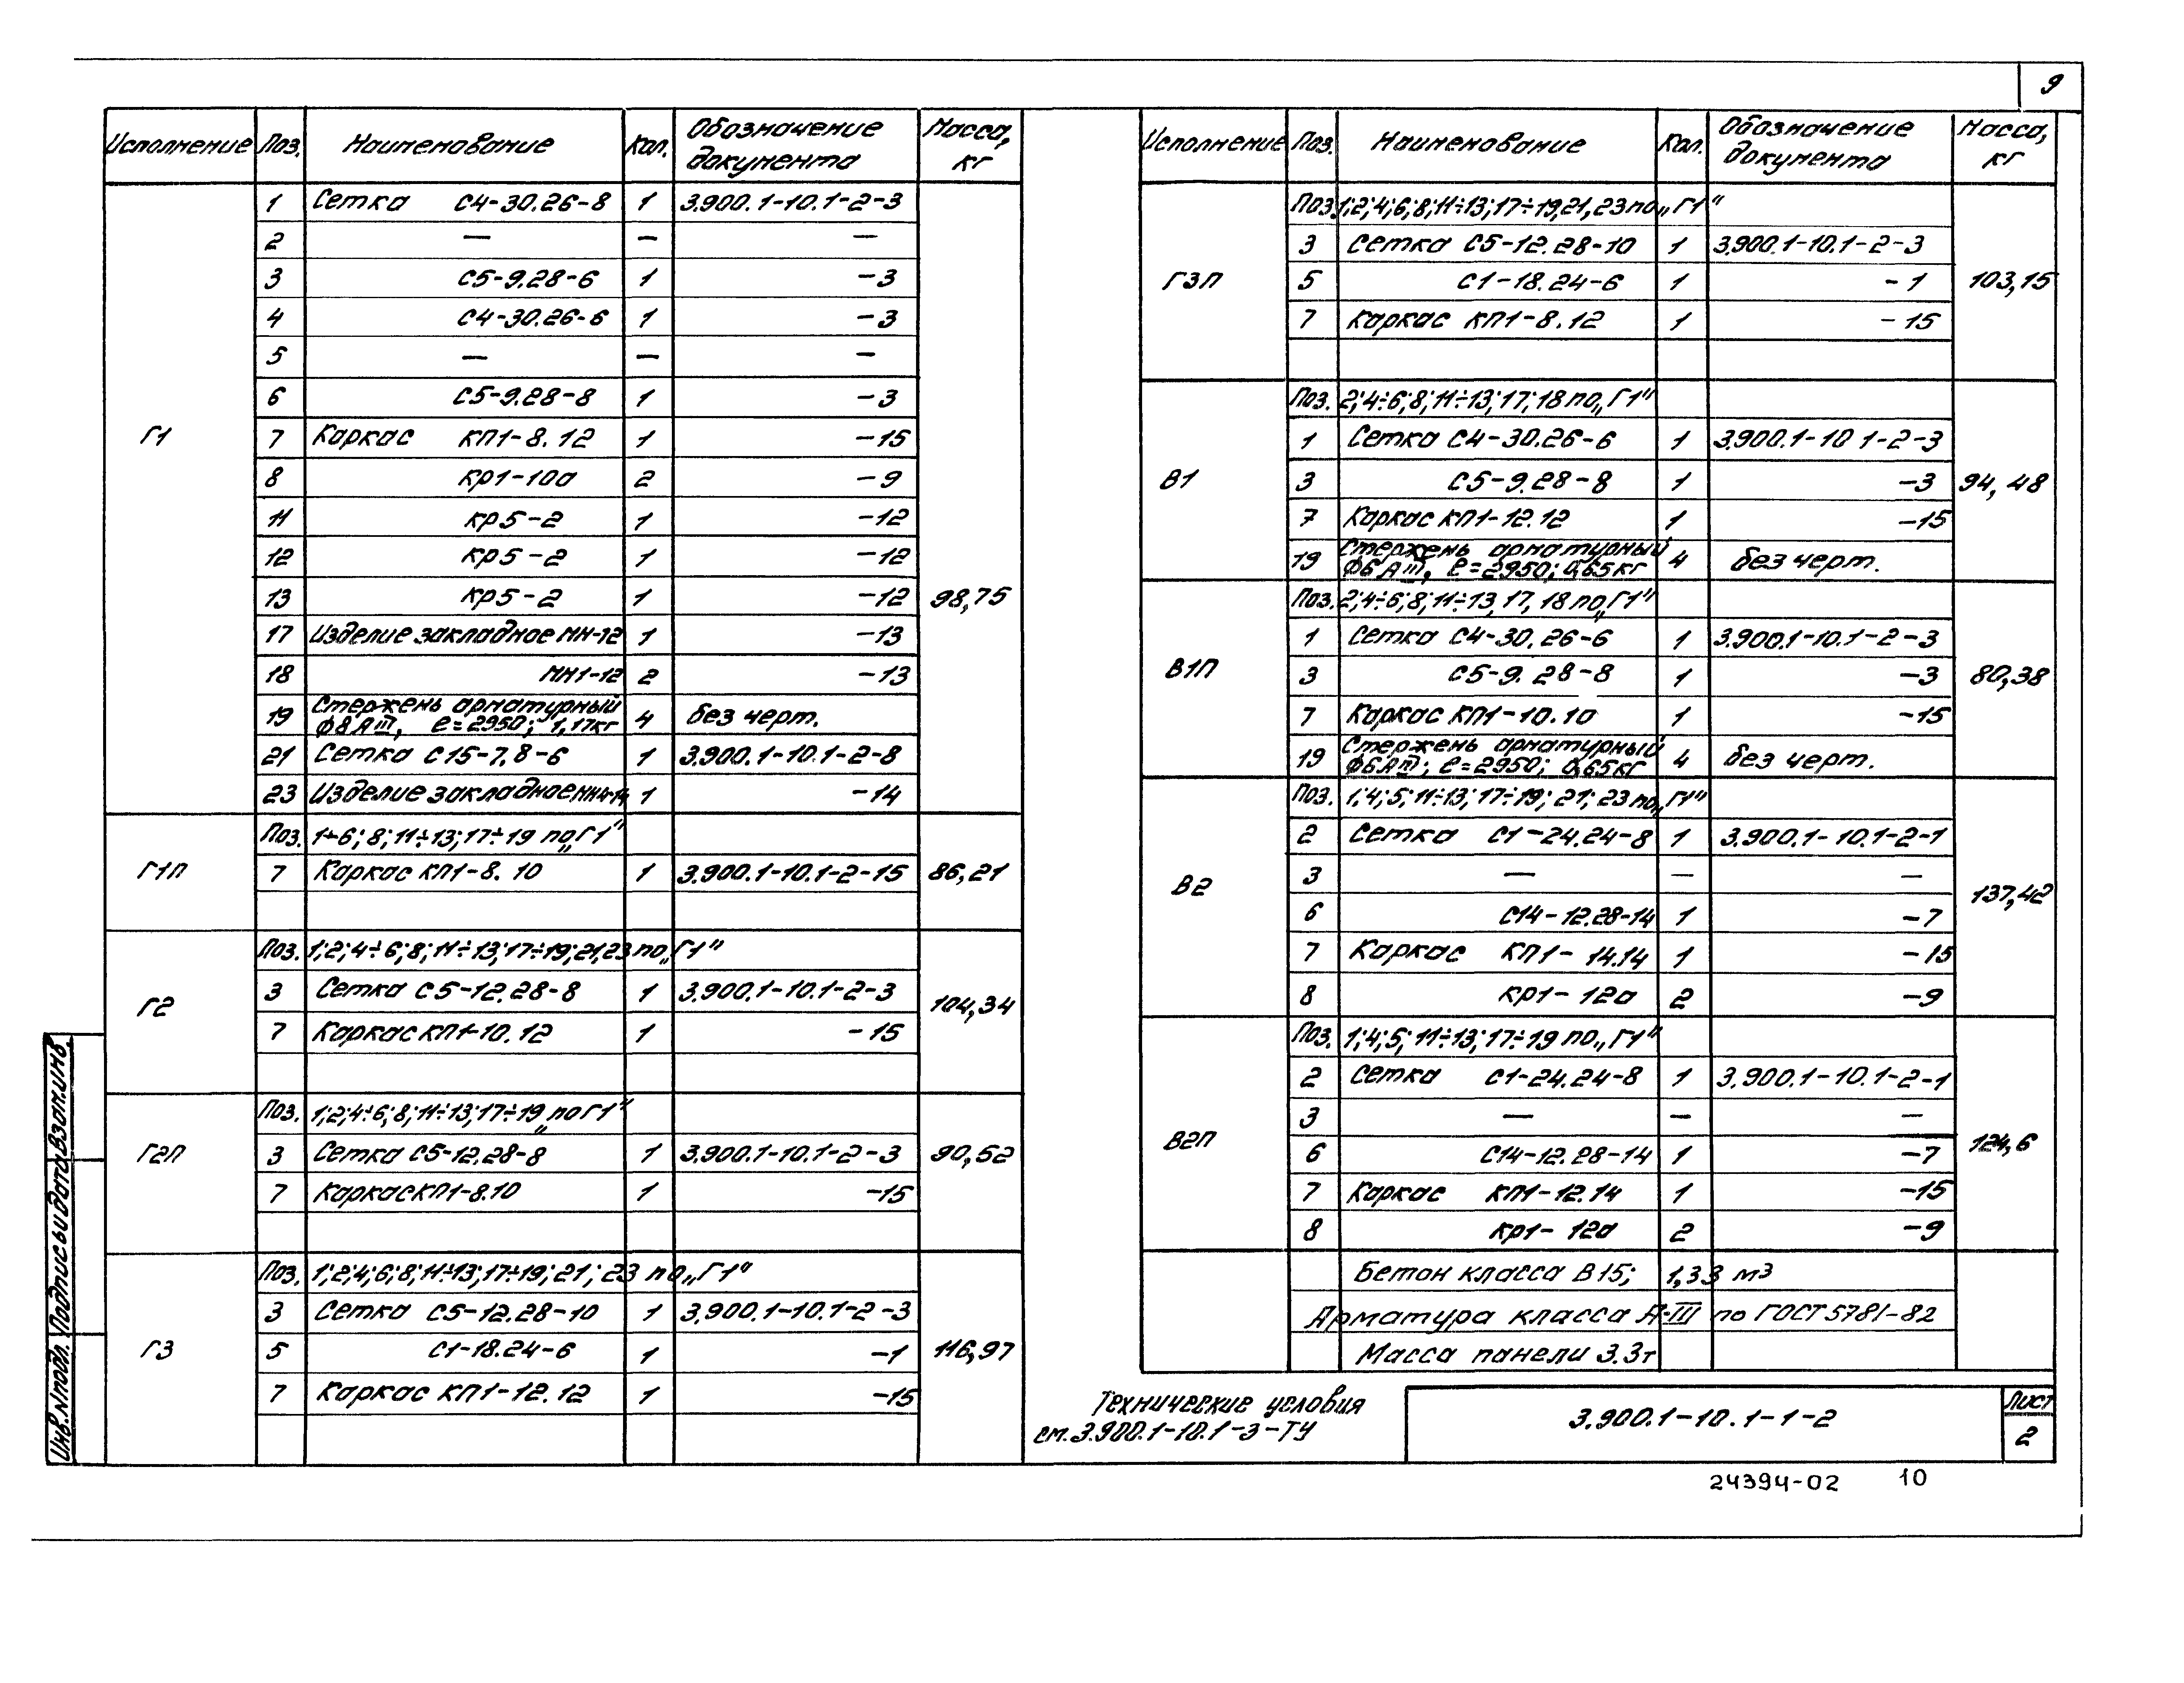 9
Исполнение Поз. Наименование Кол. Обозначение документа Масса, кг
Г1 98,75
1 Сетка С4-30.26-8 1 3.900.1-10.1-2-3
2 — — —
3 С5-9.28-6 1 -3
4 С4-30.26-6 1 -3
5 — — —
6 С5-9.28-8 1 -3
7 Каркас КП1-8.12 1 -15
8 Кр1-10а 2 -9
11 Кр5-2 1 -12
12 Кр5-2 1 -12
13 Кр5-2 1 -12
17 Изделие закладное МН-12 1 -13
18 МН1-12 2 -13
19 Стержень арматурный
ф8АIII, ℓ=2950; 1,17кг 4 без черт.
21 Сетка С15-7.8-6 1 3.900.1-10.1-2-8
23 Изделие закладное МН4-14 1 -14
Г1П 86,21
Поз. 1÷6; 8; 11÷13; 17÷19 по „Г1"
7 Каркас КП1-8.10 1 3.900.1-10.1-2-15
Г2 104,34
Поз. 1;2;4÷6;8;11÷13;17÷19;21,23 по „Г1"
3 Сетка С5-12.28-8 1 3.900.1-10.1-2-3
7 Каркас КП1-10.12 1 -15
Г2П 90,52
Поз. 1;2;4÷6;8;11÷13;17÷19 „по Г1"
3 Сетка С5-12.28-8 1 3.900.1-10.1-2-3
7 Каркас КП1-8.10 1 -15
Г3 116,97
Поз. 1;2;4;6;8;11÷13;17÷19; 21; 23 по „Г1"
3 Сетка С5-12.28-10 1 3.900.1-10.1-2-3
5 С1-18.24-6 1 -1
7 Каркас КП1-12.12 1 -15
Исполнение Поз. Наименование Кол. Обозначение документа Масса, кг
Г3П 103,15
Поз. 1;2;4;6;8;11÷13;17÷19,21,23 по „Г1"
3 Сетка С5-12.28-10 1 3.900.1-10.1-2-3
5 С1-18.24-6 1 -1
7 Каркас КП1-8.12 1 -15
В1 94,48
Поз. 2;4÷6;8;11÷13;17;18 по „Г1"
1 Сетка С4-30.26-6 1 3.900.1-10 1-2-3
3 С5-9.28-8 1 -3
7 Каркас КП1-12.12 1 -15
19 Стержень арматурный
ф6АIII, ℓ=2950; 0,65кг 4 без черт.
В1П 80,38
Поз. 2;4÷6;8;11÷13,17,18 по „Г1"
1 Сетка С4-30.26-6 1 3.900.1-10.1-2-3
3 С5-9.28-8 1 -3
7 Каркас КП1-10.10 1 -15
19 Стержень арматурный
ф6АIII; ℓ=2950; 0,65кг 4 без черт.
В2 137,42
Поз. 1;4;5;11÷13; 17÷19; 21; 23 по „Г1"
2 Сетка С1-24.24-8 1 3.900.1-10.1-2-1
3 — — —
6 С14-12.28-14 1 -7
7 Каркас КП1-14.14 1 -15
8 Кр1-12а 2 -9
В2П 124,6
Поз. 1;4;5; 11÷13; 17÷19 по „Г1"
2 Сетка С1-24.24-8 1 3.900.1-10.1-2-1
3 — — —
6 С14-12.28-14 1 -7
7 Каркас КП1-12.14 1 -15
8 Кр1-12а 2 -9
Бетон класса В15; 1,33 м3
Арматура класса А-III по ГОСТ 5781-82
Масса панели 3.3т
Технические условия
см.3.900.1-10.1-3-ТУ
3.900.1-10.1-1-2
Лист
2
24394-02 10
Инв.№подл. Подпись и дата Взам.инв.